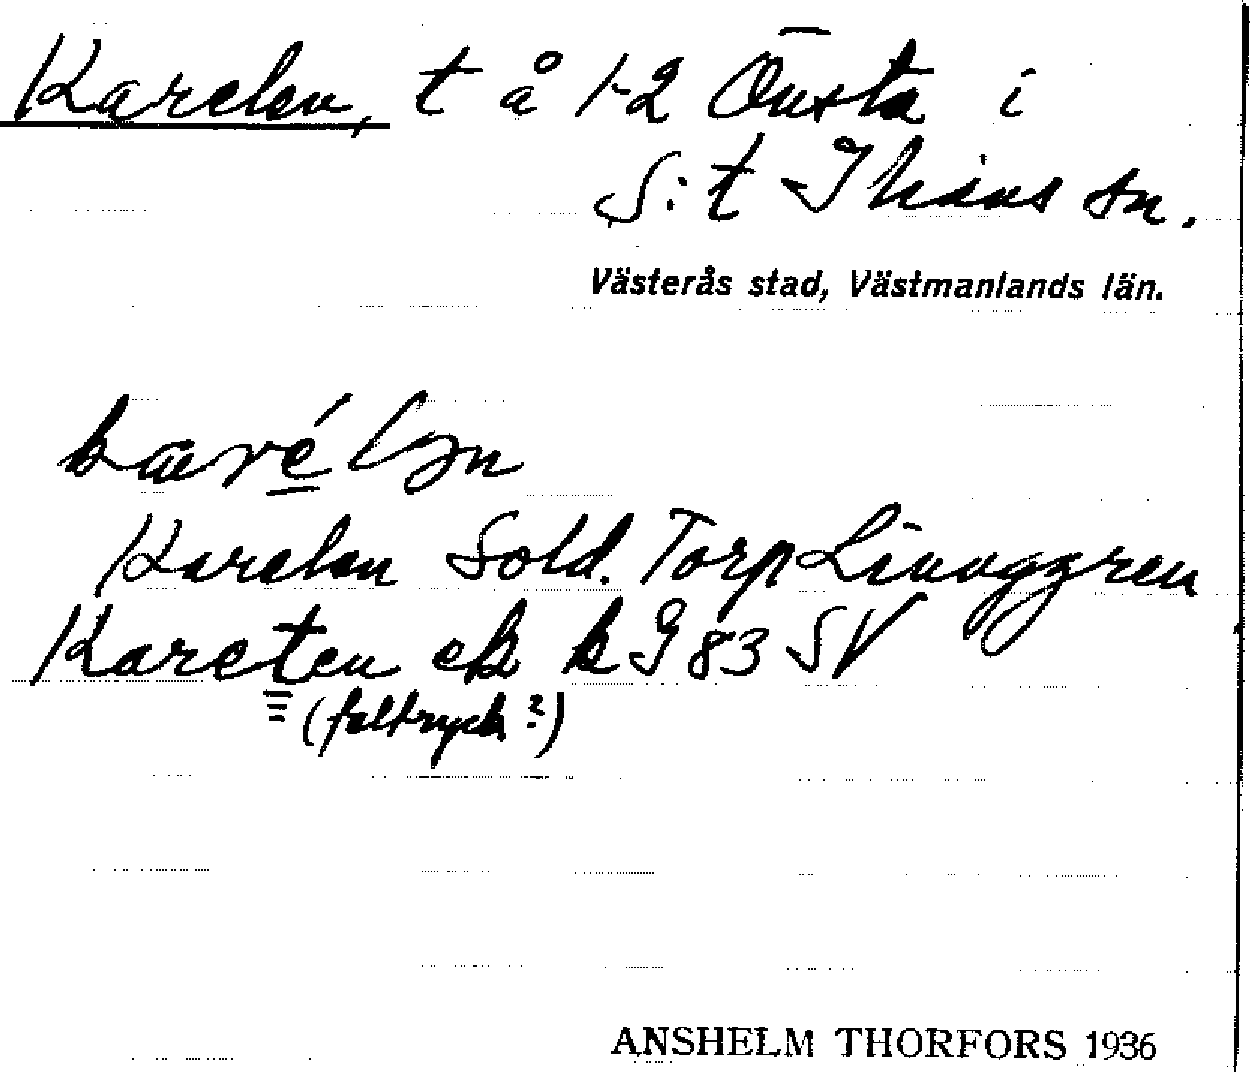 Karelen, t å 1-2 Önsta i
S:t Ihians sn.
Västerås stad, Västmanlands län.
karé
Karelen Sold. Torp Linnggren
Kareten ek kg 83 SV
(feltryck?)
ANSHELM THORFORS 1936